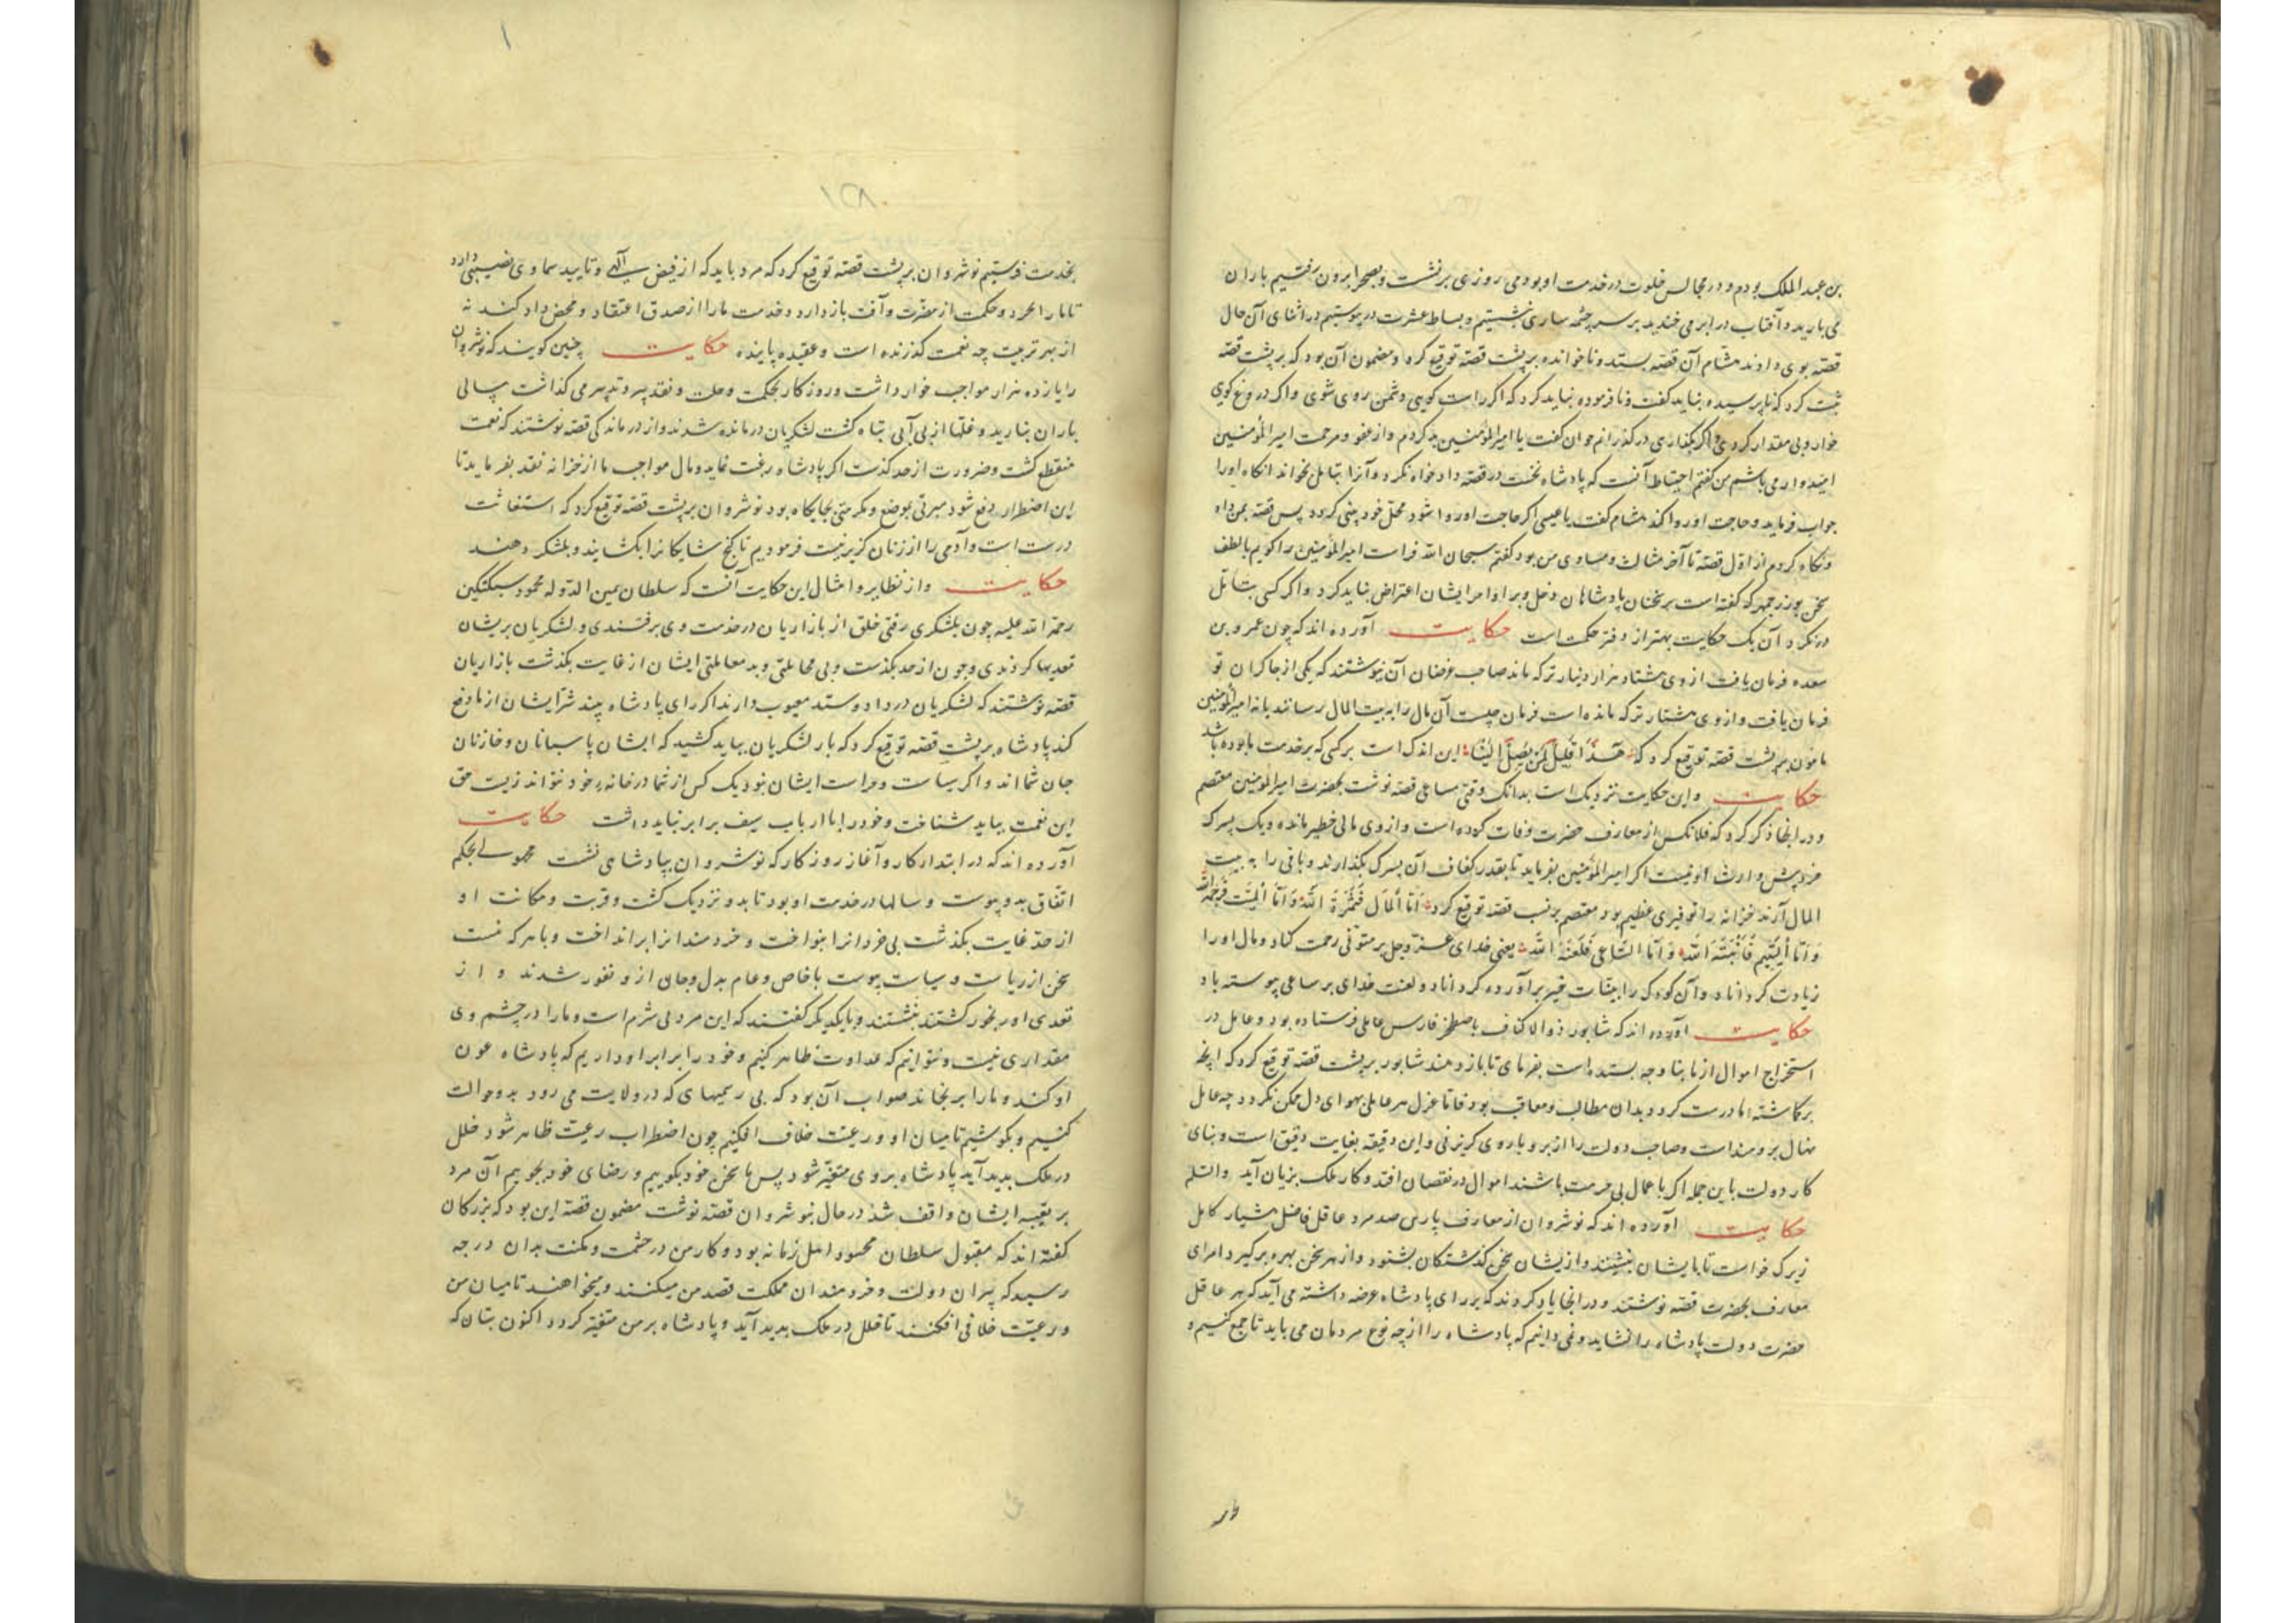 بن عبد الملک بودم و در مجالس خلوت در خدمت او بودمی روزی برنشست و بصحرا برون رفتیم باران
می بارید و آفتاب در ابر می خندید بر سر چشمه ساری بنشستیم و بساط عشرت در پیوستیم در اثنای آن حال
قصه بوی دادند هشام آن قصه بستد و ناخوانده بر پشت قصه توقیع کرد و مضمون آن بود که بر پشت قصه
ثبت کرد که ناپرسیده نباید گفت و نافرموده نباید کرد که اگر راست گویی دشمن روی شوی و اگر دروغ گویی
خوار و بی مقدار گردی و اگر بگذاری در گذرانم جوان گفت یا امیر المؤمنین بد کردم و از عفو و مرحمت امیر المؤمنین
امیدوار می باشم من گفتم احتیاط آنست که پادشاه نخست در قصه دادخواه نگرد و آنرا بتامل بخواند آنگاه او را
جواب فرماید و حاجت او روا کند هشام گفت یا عیسی اگر حاجت او روا شود محل خود بینی گردد پس قصه بمن داد
و نگاه کردم از اول قصه تا آخر مثالب و مساوی من بود گفتم سبحان الله فراست امیر المؤمنین را گویم یا لطف
سخن بوزرجمهر که گفته است بر سخنان پادشاهان دخل و بر اوامر ایشان اعتراض نباید کرد و اگر کسی بتامل
در نگرد آن یک حکایت بهتر از دفتر حکمت است حکایت آورده اند که چون عمرو بن
سعده فرمان یافت از وی هشتاد هزار دینار ترکه ماند صاحب غرضان آن بنوشتند که یکی از چاکران تو
فرمان یافت و از وی هشتاد ترکه مانده است فرمان چیست آن مال را به بیت المال رسانند یا نه امیر المؤمنین
مامون بر پشت قصه توقیع کرد که هذا قلیل لمن یصل الینا این اندک است بر کسی که بر خدمت ما بوده باشد
حکایت و این حکایت نزدیک است بدانک وقتی ساعی قصه نوشت بحضرت امیر المؤمنین معتصم
و در آنجا ذکر کرد که فلانکس از معارف حضرت وفات کرده است و از وی مالی خطیر مانده و یک پسرک
خرد بیش وارث او نیست اگر امیر المؤمنین بفرماید تا بقدر کفاف آن پسرک بگذارند و باقی را به بیت
المال آرند خزانه را توفیری عظیم بود معتصم بر پشت قصه توقیع کرد اما المال فثمره الله و اما المیت فرحمه الله
و اما الیتیم فانبته الله و اما الساعی فلعنه الله یعنی خدای عز و جل بر متوفی رحمت کناد و مال او را
زیادت گرداناد و آن کودک را بنبات خیر برآورده گرداناد و لعنت خدای بر ساعی پیوسته باد
حکایت آورده اند که شاپور ذوالاکتاف باصطخر فارس عاملی فرستاده بود و عامل در
استخراج اموال از ما بناوجه بستده است بفرمای تا باز دهند شاپور بر پشت قصه توقیع کرد که آنچه
برگاشته اما درست گردد بدان مطالب و معاقب بود فاما عزل هر عاملی بهوای دل ممکن نگردد چه عامل
نهال برومند است و صاحب دولت را از بر و باروی گریز نی و این دقیقه بغایت دقیق است و بنای
کار دولت باین جمله اگر با عمال بی حرمت باشند اموال در نقصان افتد و کار ملک بزیان آید والسلم
حکایت آورده اند که نوشروان از معارف پارس صد مرد عاقل فاضل هشیار کامل
زیرک خواست تا با ایشان بنشیند و از یشان سخن گذشتگان بشنود و از هر سخن بهره برگیرد امرای
معارف بحضرت قصه نوشتند و در آنجا یاد کردند که بر رای پادشاه عرضه داشته می آید که هر عاقل
حضرت دولت پادشاه را نشاید و نمی دانیم که پادشاه را از چه نوع مردمان می باید تا جمع کنیم و
۱۵۸
بخدمت فرستیم نوشروان بر پشت قصه توقیع کرد که مرد باید که از فیض الهی و تایید سماوی نصیبی دارد
تا ما را بخرد و حکمت از مضرت و آفت باز دارد و خدمت ما را از صدق اعتقاد و محض داد کند نه
از بهر تربیت چه نعمت گذرنده است و عقیده پاینده حکایت چنین گویند که نوشروان
را یازده هزار مواجب خوار داشت و روزگار بحکمت و نقد می گذاشت سالی
باران نبارید و غلها از بی آبی تباه گشت لشکریان درمانده شدند و از درماندگی قصه نوشتند که نعمت
منقطع گشت و ضرورت از حد گذشت اگر پادشاه رغبت نماید و مال مواجب ما از خزانه نقد بفرماید تا
این اضطرار دفع شود مبرتی بموضع و مکرمتی بجایگاه بود نوشروان بر پشت قصه توقیع کرد که استغاثت
درست است و آدمی را از زنان گزیر نیست فرمودیم تا گنج شایگان را بگشایند و بلشکر دهند
حکایت و از نظایر و امثال این حکایت آنست که سلطان یمین الدوله محمود سبکتکین
رحمة الله علیه چون بلشکری رفتی خلق از بازاریان در خدمت وی برفتندی و لشکریان بریشان
تعدیها کردندی و چون از حد بگذشت و بی محابایی و بد معاملتی ایشان از غایت بگذشت بازاریان
قصه نوشتند که لشکریان در داد و ستد معیوب دارند اگر رای پادشاه بیند شر ایشان از ما دفع
کند پادشاه بر پشت قصه توقیع کرد که بار لشکریان بباید کشید که ایشان پاسبانان و خازنان
جان شما اند و اگر سیاست و حراست ایشان نبود یک کس از شما در خانه خود نتواند زیست حق
این نعمت بباید شناخت و خود را با ارباب سیف برابر نباید داشت حکایت
آورده اند که در ابتدا کار و آغاز روزگار که نوشروان بپادشاهی نشست مجهولی بحکم
اتفاق بدو پیوست و سالها در خدمت او بود تا بدو نزدیک گشت و قربت و مکانت او
از حد غایت بگذشت بی خردانرا بنواخت و خردمندانرا برانداخت و با هر که نشست
سخن از ریاست و سیاست پیوست با خاص و عام بدل و جان ازو نفور شدند و از
تعدی او رنجور گشتند بنشستند و با یکدیگر گفتند که این مرد بی شرم است و ما را در چشم وی
مقداری نیست و نتوانیم که عداوت ظاهر کنیم و خود را برابر او داریم که پادشاه عون
او کند و ما را برنجاند صواب آن بود که بی رسمیهای که در ولایت می رود بدو حوالت
کنیم و بکوشیم تا میان او و رعیت خلاف افکنیم چون اضطراب رعیت ظاهر شود خلل
در ملک پدید آید پادشاه بر وی متغیر شود پس ما سخن خود بگوییم و رضای خود بجوییم آن مرد
بر تعبیه ایشان واقف شد در حال بنوشروان قصه نوشت مضمون قصه این بود که بزرگان
گفته اند که مقبول سلطان محسود اهل زمانه بود و کار من در حشمت و مکنت بدان درجه
رسید که پیران دولت و خردمندان مملکت قصد من میکنند و میخواهند تا میان من
و رعیت خلافی افکنند تا خلل در ملک پدید آید و پادشاه بر من متغیر گردد اکنون بتان که